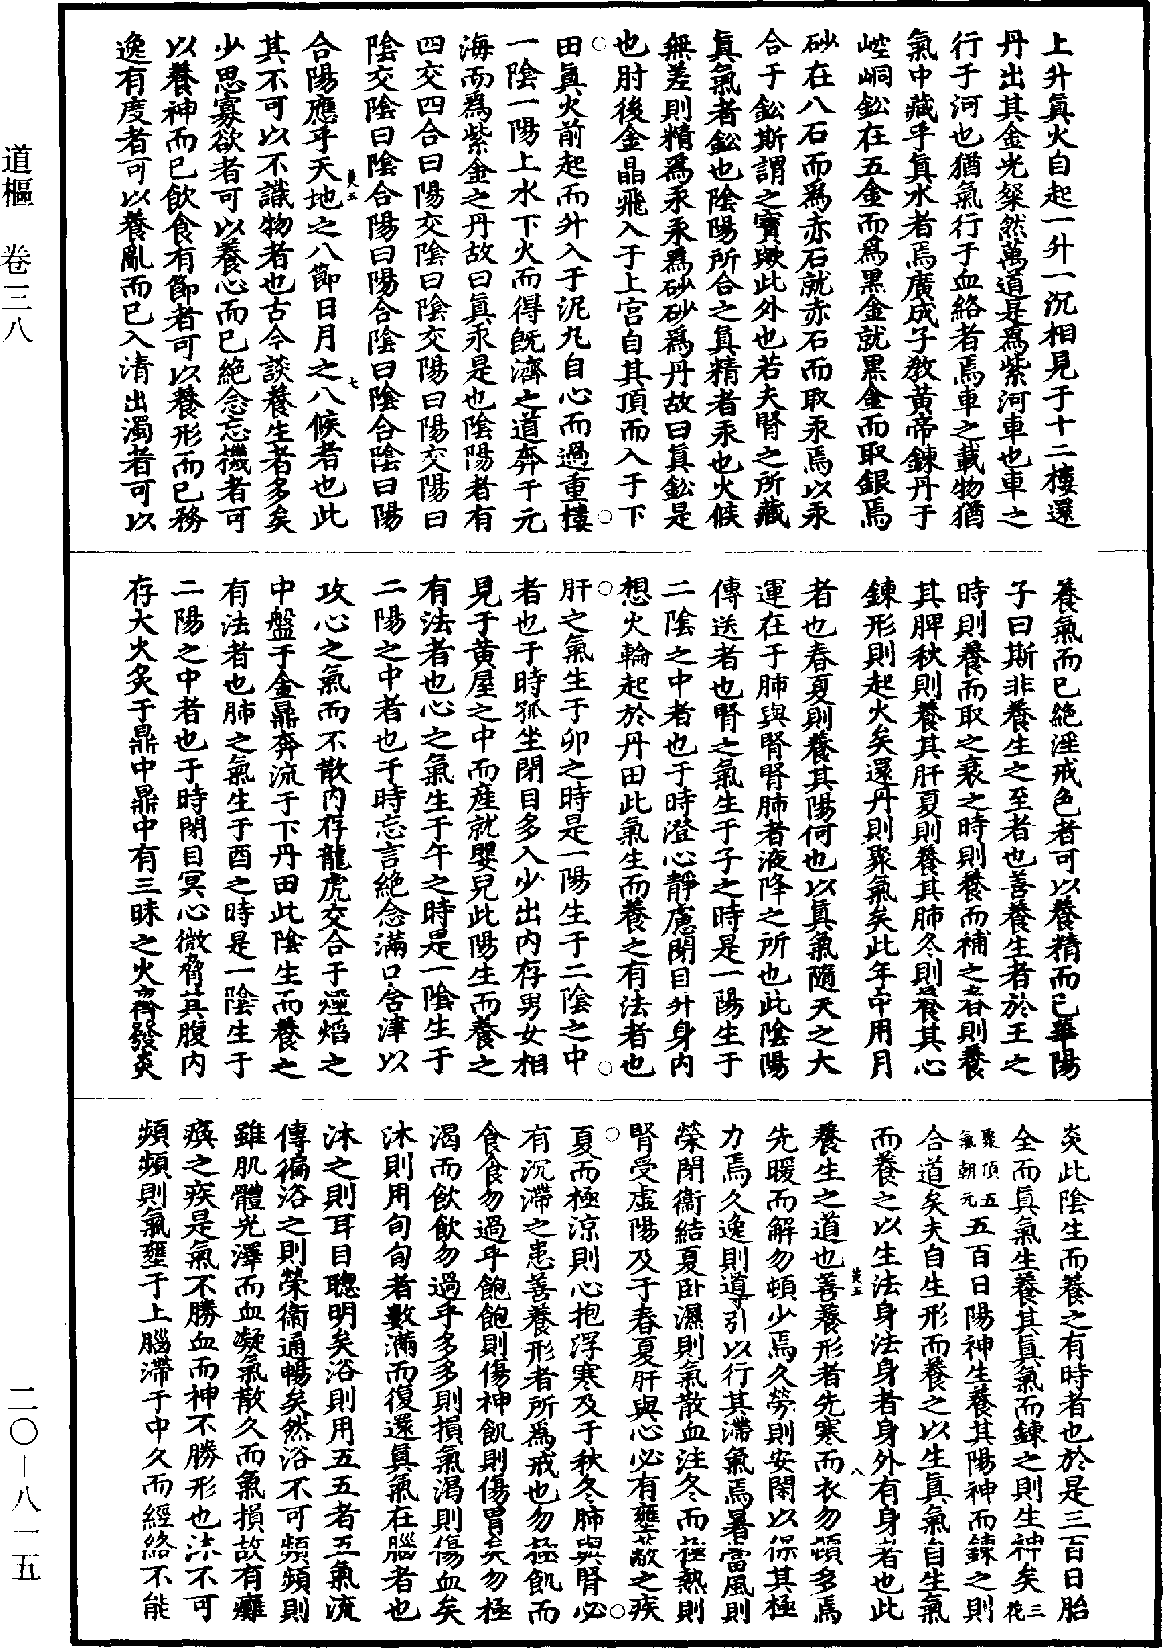 道樞　卷三八
上升眞火自起一升一沉相見于十二樓還
丹出其金光粲然萬道是爲紫河車也車之
行于河也猶氣行于血絡者焉車之載物猶
氣中藏乎眞水者焉廣成子教黃帝鍊丹于
崆峒鈆在五金而爲黑金就黑金而取銀焉
砂在八石而爲赤石就赤石而取汞焉以汞
合于鈆斯謂之寶歟此外也若夫腎之所藏
眞氣者鈆也陰陽所合之眞精者汞也火候
無差則精爲汞汞爲砂砂爲丹故曰眞鈆是
也肘後金晶飛入于上宮自其頂而入于下
田眞火前起而升入于泥丸自心而過重樓
一陰一陽上水下火而得旣濟之道奔于元
海而爲紫金之丹故曰眞汞是也陰陽者有
四交四合曰陽交陰曰陰交陽曰陽交陽曰
陰交陰曰陰合陽曰陽合陰曰陰合陰曰陽
合陽應乎天地之八節日月之八候者也此
其不可以不識物者也古今談養生者多矣
少思寡欲者可以養心而已絕念忘機者可
以養神而已飲食有節者可以養形而已務
逸有度者可以養亂而已入清出濁者可以
養氣而已絕淫戒色者可以養精而已華陽
子曰斯非養生之至者也善養生者於王之
時則養而取之衰之時則養而補之春則養
其脾秋則養其肝夏則養其肺冬則養其心
鍊形則起火矣還丹則聚氣矣此年中用月
者也春夏則養其陽何也以眞氣隨天之大
運在于肺與腎腎肺者液降之所也此陰陽
傳送者也腎之氣生于子之時是一陽生于
二陰之中者也于時澄心靜慮閉目升身內
想火輪起於丹田此氣生而養之有法者也
肝之氣生于卯之時是一陽生于二陰之中
者也于時孤坐閉目多入少出內存男女相
見于黃屋之中而產就嬰兒此陽生而養之
有法者也心之氣生于午之時是一陰生于
二陽之中者也于時忘言絕念滿口含津以
攻心之氣而不散內存龍虎交合于煙焰之
中盤于金鼎奔流于下丹田此陰生而養之
有法者也肺之氣生于酉之時是一陰生于
二陽之中者也于時閉目冥心微脅其腹內
存大火炙于鼎中鼎中有三昧之火齊發炎
炎此陰生而養之有時者也於是三百日胎
全而眞氣生養其眞氣而鍊之則生神矣三花
聚頂五氣朝元五百日陽神生養其陽神而鍊之則
合道矣夫自生形而養之以生眞氣自生氣
而養之以生法身法身者身外有身者也此
養生之道也善養形者先寒而衣勿頓多焉
先暖而解勿頓少焉久勞則安閑以保其極
力焉久逸則導引以行其滯氣焉暑當風則
榮閉衞結夏卧濕則氣散血注冬而極熱則
腎受虛陽及于春夏肝與心必有壅蔽之疾
夏而極涼則心抱浮寒及于秋冬肺與腎必
有沉滯之患善養形者所爲戒也勿極飢而
食食勿過乎飽飽則傷神飢則傷胃矣勿極
渴而飲飲勿過乎多多則損氣渴則傷血矣
沐則用旬旬者數滿而復還眞氣在腦者也
沐之則耳目聰明矣浴則用五五者五氣流
傳徧浴之則榮衞通暢矣然浴不可頻頻則
雖肌體光澤而血凝氣散久而氣損故有癱
瘓之疾是氣不勝血而神不勝形也沐不可
頻頻則氣壅于上腦滯于中久而經絡不能
二〇—八一五